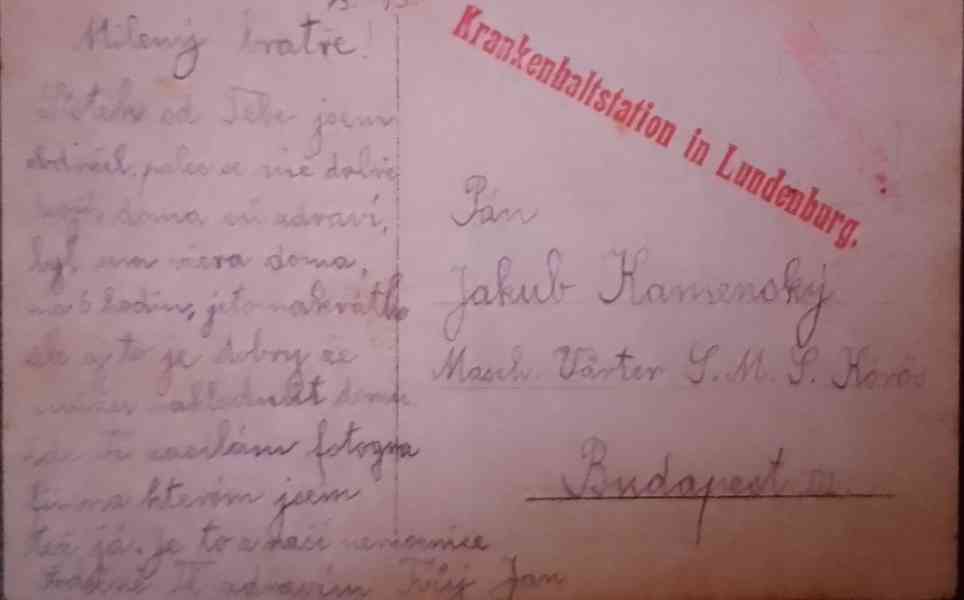 Milený bratře!
Lístek od Tebe jsem
obdržel, palec se mě dobře
doma sú zdraví,
byl sem včera doma,
na 6 hodin, je to nakrátko
ale aj to je dobrý že
možu nahlednút domu
Zde Ti zasílám fotogra
fii na kterém jsem
též já. Je to z naší nemocnice
Srdečně Tě zdravím Tvůj Jan
Krankenhaltstation in Lundenburg.
Pán
Jakub Kamenský
Masch. Värter S. M. S. Körös
Budapest III.